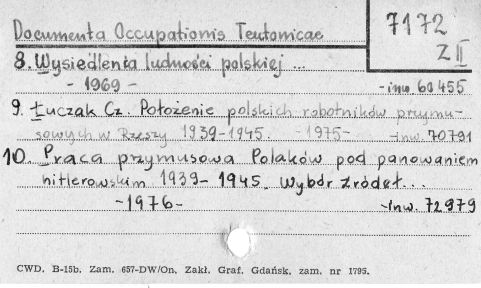 Documenta Occupationis Teutonicae
7172
Z II
8. Wysiedlenia ludności polskiej ...
- 1969 - -inw. 60 455
9. Łuczak Cz. Położenie polskich robotników przymu-
sowych w Rzeszy 1939-1945. -1975- -inw. 70791
10. Praca przymusowa Polaków pod panowaniem
hitlerowskim 1939-1945. Wybór źródeł...
-1976- -inw. 72979
CWD, B-15b, Zam. 657-DW/On, Zakł. Graf. Gdańsk, zam. nr 1795.